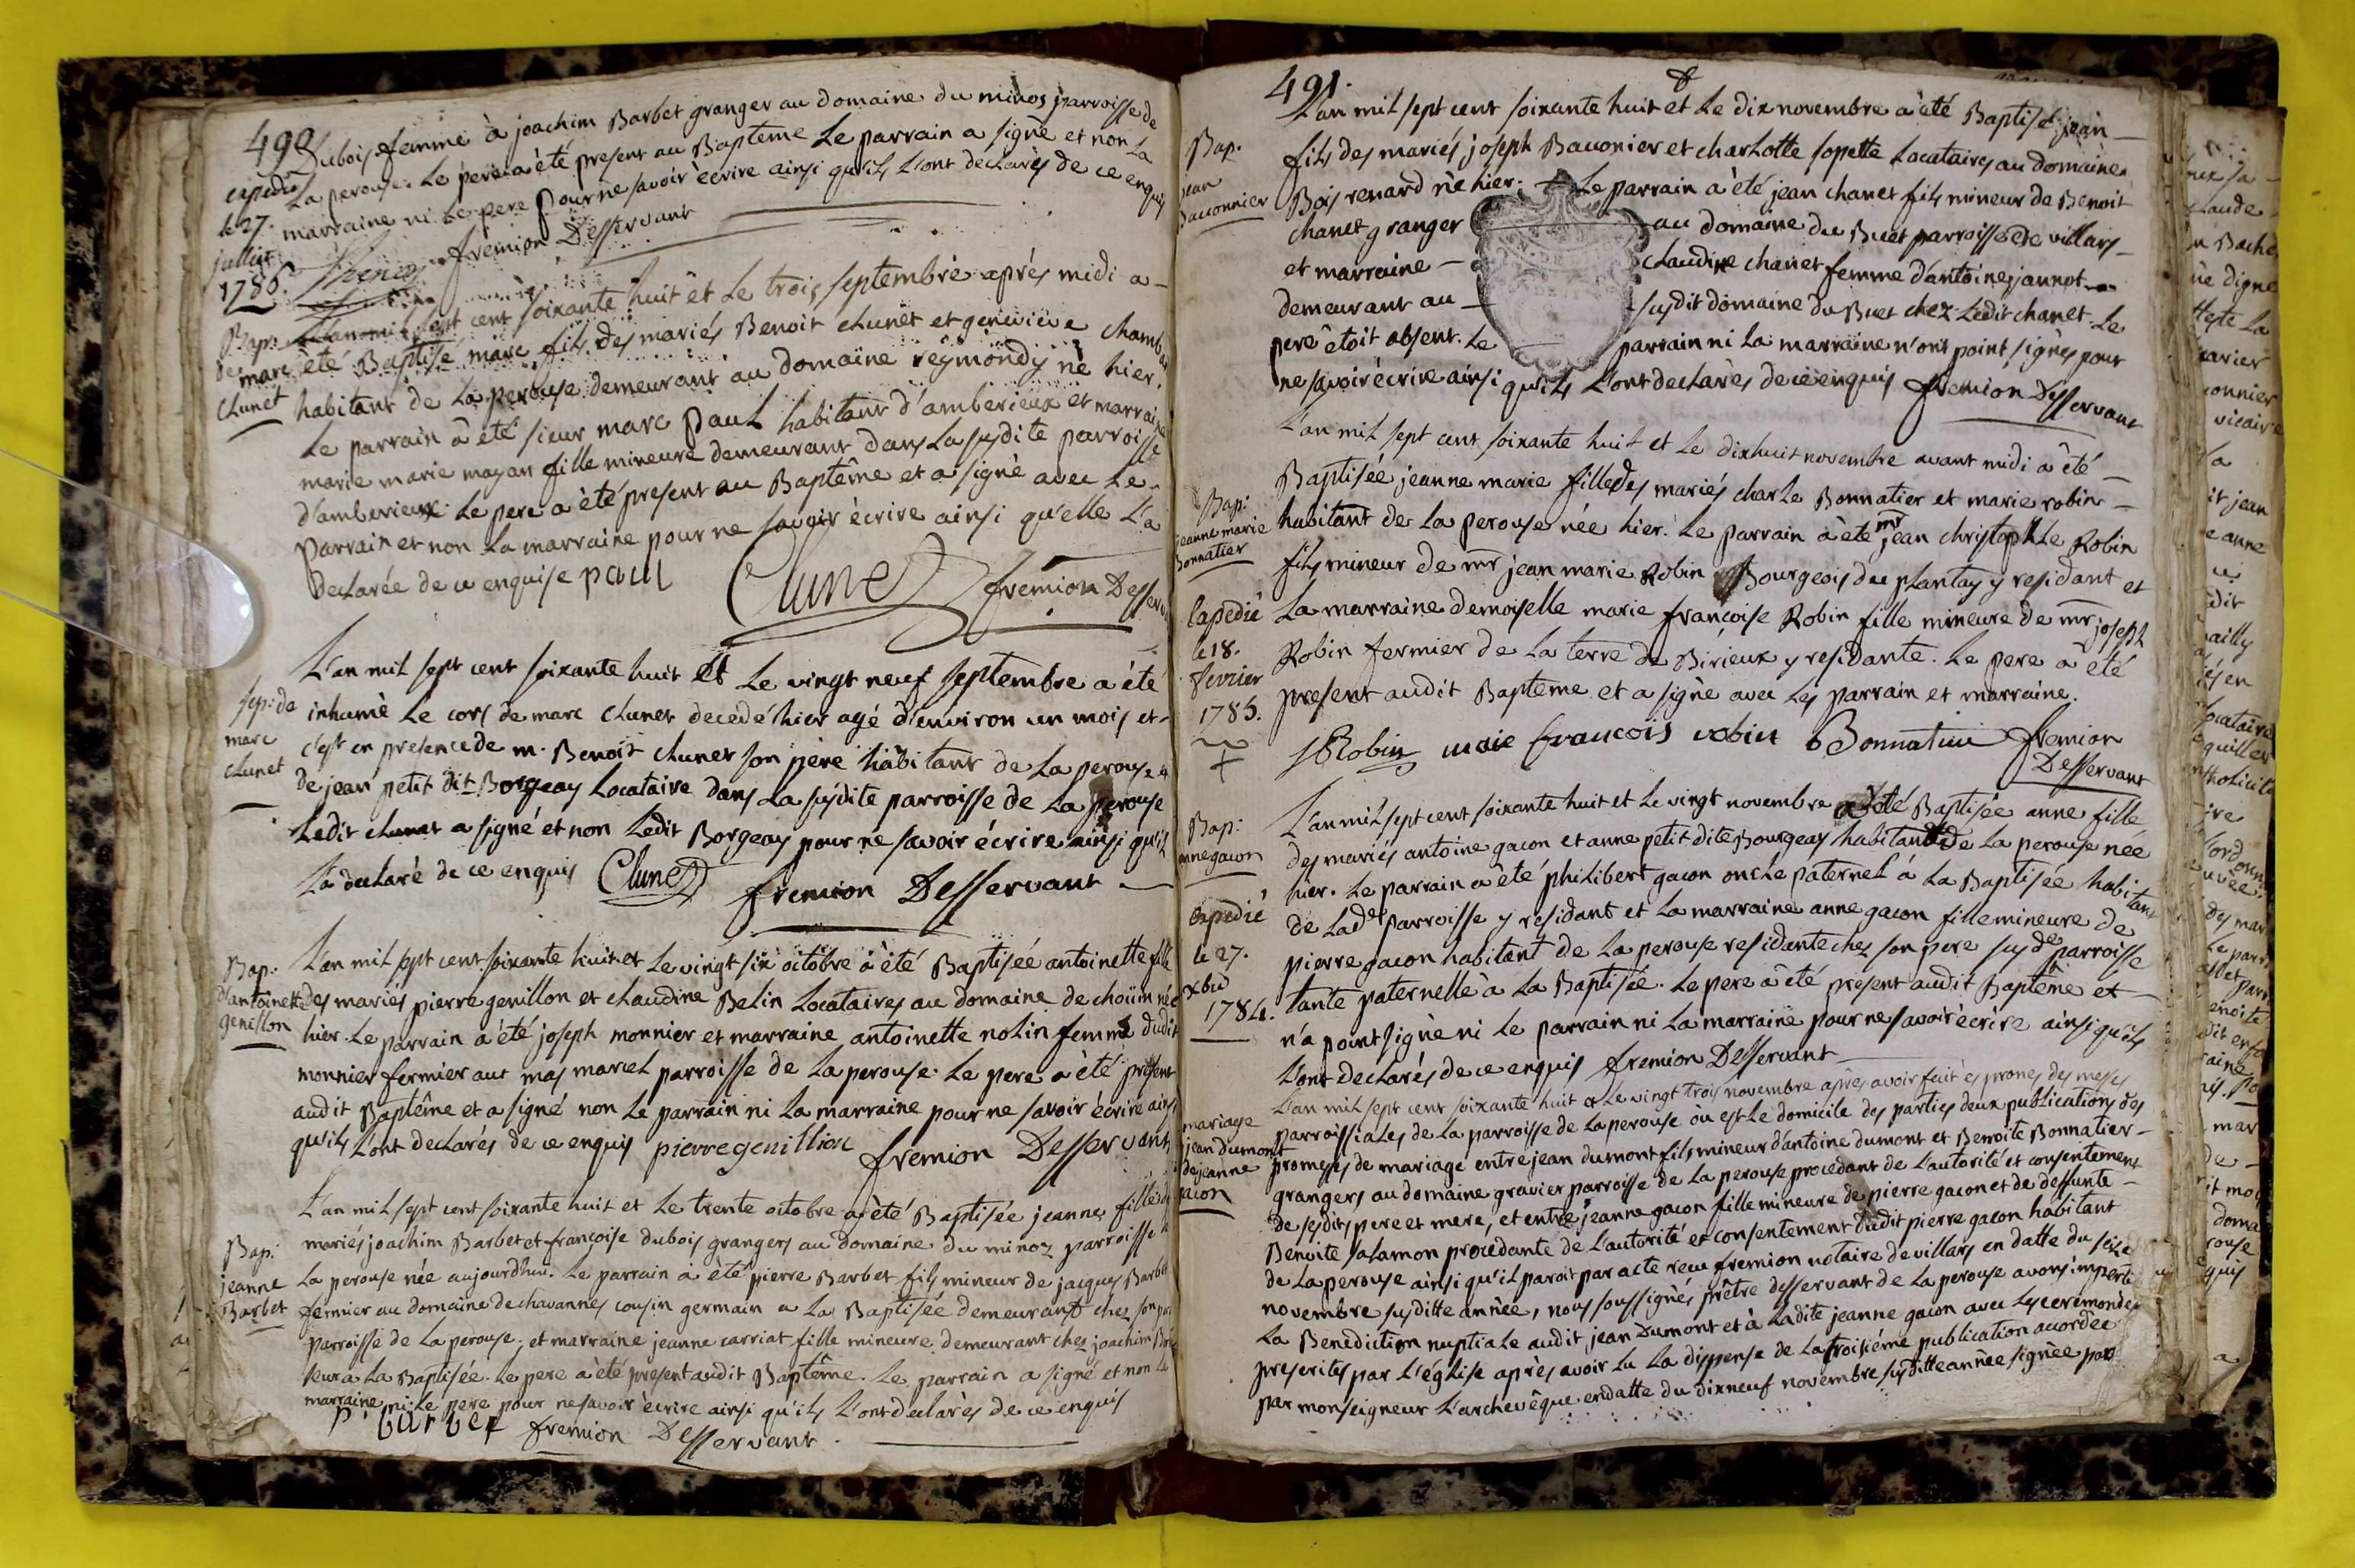 490
Dubois femme à joachim Barbet granger au domaine du minos parroisse de
La perouse. Le pere a été present au Bapteme Le parrain a signé et non La
marraine ni Le pere pour ne savoir écrire ainsi qu'ils L'ont declarés de ce enquis
expedié
le 27.
juillet
1786.
fremion Desservant
Bap:
de marc
clunet
L'an mil sept cent soixante huit et Le trois septembre aprés midi a
été Baptisé marc fils des mariés Benoit clunet et geneviève
habitant de La perouse demeurant au domaine reymondy né hier.
Le parrain a été sieur marc paul habitant d'amberieux et marraine
marie marie mayan fille mineure demeurant dans La susdite parroisse
d'amberieux. Le pere a été present au Baptême et a signé avec Le
parrain et non La marraine pour ne savoir écrire ainsi qu'elle L'a
declarée de ce enquise paul Clunet fremion Desserv
Sep: de
marc
clunet
L'an mil sept cent soixante huit Et Le vingt neuf septembre a été
inhumé Le cors de marc clunet decedé hier agé d'environ un mois et
c'est en presence de m. Benoit clunet son père habitant de La perouse et
de jean petit dit Borgeay Locataire dans La susdite parroisse de La perouse
Ledit clunet a signé et non Ledit Borgeay pour ne savoir écrire ainsi qu'il
L'a declaré de ce enquis Clunet fremion Desservant
Bap:
d'antoinette
genillon
L'an mil sept cent soixante huit et Le vingt six octobre a été Baptisée antoinette fille
des mariés pierre genillon et claudine Belin Locataires au domaine de choüin née
hier. Le parrain a été joseph monnier et marraine antoinette nolin femme dudit
monnier fermier aut mas marcel parroisse de La perouse. Le pere a été présent
audit Baptême et a signé non Le parrain ni La marraine pour ne savoir écrire ainsi
qu'ils L'ont declarés de ce enquis pierre genillion fremion Desservant
Bap:
jeanne
Barbet
L'an mil sept cent soixante huit et Le trente octobre a été Baptisée jeanne fille des
mariés joachim Barbet et françoise dubois grangers au domaine du minoz parroisse de
La perouse née aujourd'hui. Le parrain a été pierre Barbet fils mineur de jacques Barbet
fermier au domaine de chavannes cousin germain a La Baptisée demeurant chez son pere
parroisse de La perouse. et marraine jeanne carriat fille mineure demeurant chez joachim
seur a La Baptisée. Le pere a été présent audit Baptême. Le parrain a signé et non La
marraine ni Le pere pour ne savoir écrire ainsi qu'ils L'ont declarés de ce enquis
p. barbet fremion Desservant.
491.
Bap.
jean
Bauonnier
L'an mil sept cent soixante huit et Le dix novembre a été Baptisé jean
fils des mariés joseph Bauonier et charlotte sopette Locataires au domaine
Bois renard né hier. Le parrain a été jean chanet fils mineur de Benoit
chanet granger au domaine du Buet parroisse de villars
et marraine claudine chanet femme d'antoine jannot
demeurant au susdit domaine du Buet chez Ledit chanet. Le
pere étoit absent. Le parrain ni La marraine n'ont point signés pour
ne savoir écrire ainsi qu'ils L'ont declarés de ce enquis fremion Desservant
Bap:
jeanne marie
Bonnatier
expedié
le 18.
fevrier
1785.
L'an mil sept cent soixante huit et Le dixhuit novembre avant midi a été
Baptisée jeanne marie fille des mariés charle Bonnatier et marie robin
habitant de La perouse née hier. Le parrain a été mr jean christophle Robin
fils mineur de mr jean marie Robin Bourgeois du plantay y residant et
La marraine demoiselle marie françoise Robin fille mineure de mr joseph
Robin fermier de La terre de Birieux y residante. Le pere a été
present audit Baptême et a signé avec Les parrain et marraine.
Robin marie francois robin Bonnatier fremion
Desservant
Bap:
anne gacon
Expedié
le 27.
xbre
1784.
L'an mil sept cent soixante huit et Le vingt novembre a été Baptisée anne fille
des mariés antoine gacon et anne petit dite Bourgeay habitant de La perouse née
hier. Le parrain a été philibert gacon oncle paternel á La Baptisée habitant
de Lade parroisse y residant et La marraine anne gacon fille mineure de
pierre gacon habitant de La perouse residante chez son pere susde parroisse
tante paternelle à La Baptisée. Le pere a été present audit Baptême et
n'a point signé ni Le parrain ni La marraine pour ne savoir écrire ainsi qu'ils
L'ont declarés de ce enquis fremion Desservant
mariage
jean dumont
de jeanne
gacon
L'an mil sept cent soixante huit et Le vingt trois novembre après avoir fait és prones des meses
parroissiales de La parroisse de La perouse ou est Le domicile des parties deux publications des
promesses de mariage entre jean dumont fils mineur d'antoine dumont et Benoite Bonnatier
grangers au domaine gravier parroisse de La perouse procedant de L'autorité et consentement
de sesdits pere et mere, et entre jeanne gacon fille mineure de pierre gacon et de deffunte
Benoite salamon procedante de L'autorité et consentement dudit pierre gacon habitant
de La perouse ainsi qu'il paroit par acte reçu fremion notaire de villars en datte du seize
novembre susditte année, nous soussignés prêtre desservant de La perouse avons imparti
La Benediction nuptiale audit jean Dumont et à Ladite jeanne gacon avec Les ceremonies
prescrites par L'église après avoir lu La dispense de La troisiéme publication acordée
par monseigneur L'archevêque endatte du dixneuf novembre susditte année signée par